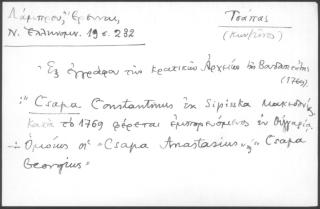 Λάμπρου Ἔρευναι,
Ν. Ἑλληνομν. 19 σ. 282
Τσάπας
Ἐξ ἐγγράφων τῶν κρατικῶν Ἀρχείων τῆς Βουδαπέστης
(1769)
"Csapa Constantinus ἐκ Sipiska Μακεδονίας
κατὰ τὸ 1769 φέρεται ἐμπορευόμενος ἐν Οὑγγαρίᾳ
- Ὁμοίως οἱ "Csapa Anastasius" κ "Csapa
Georgius"